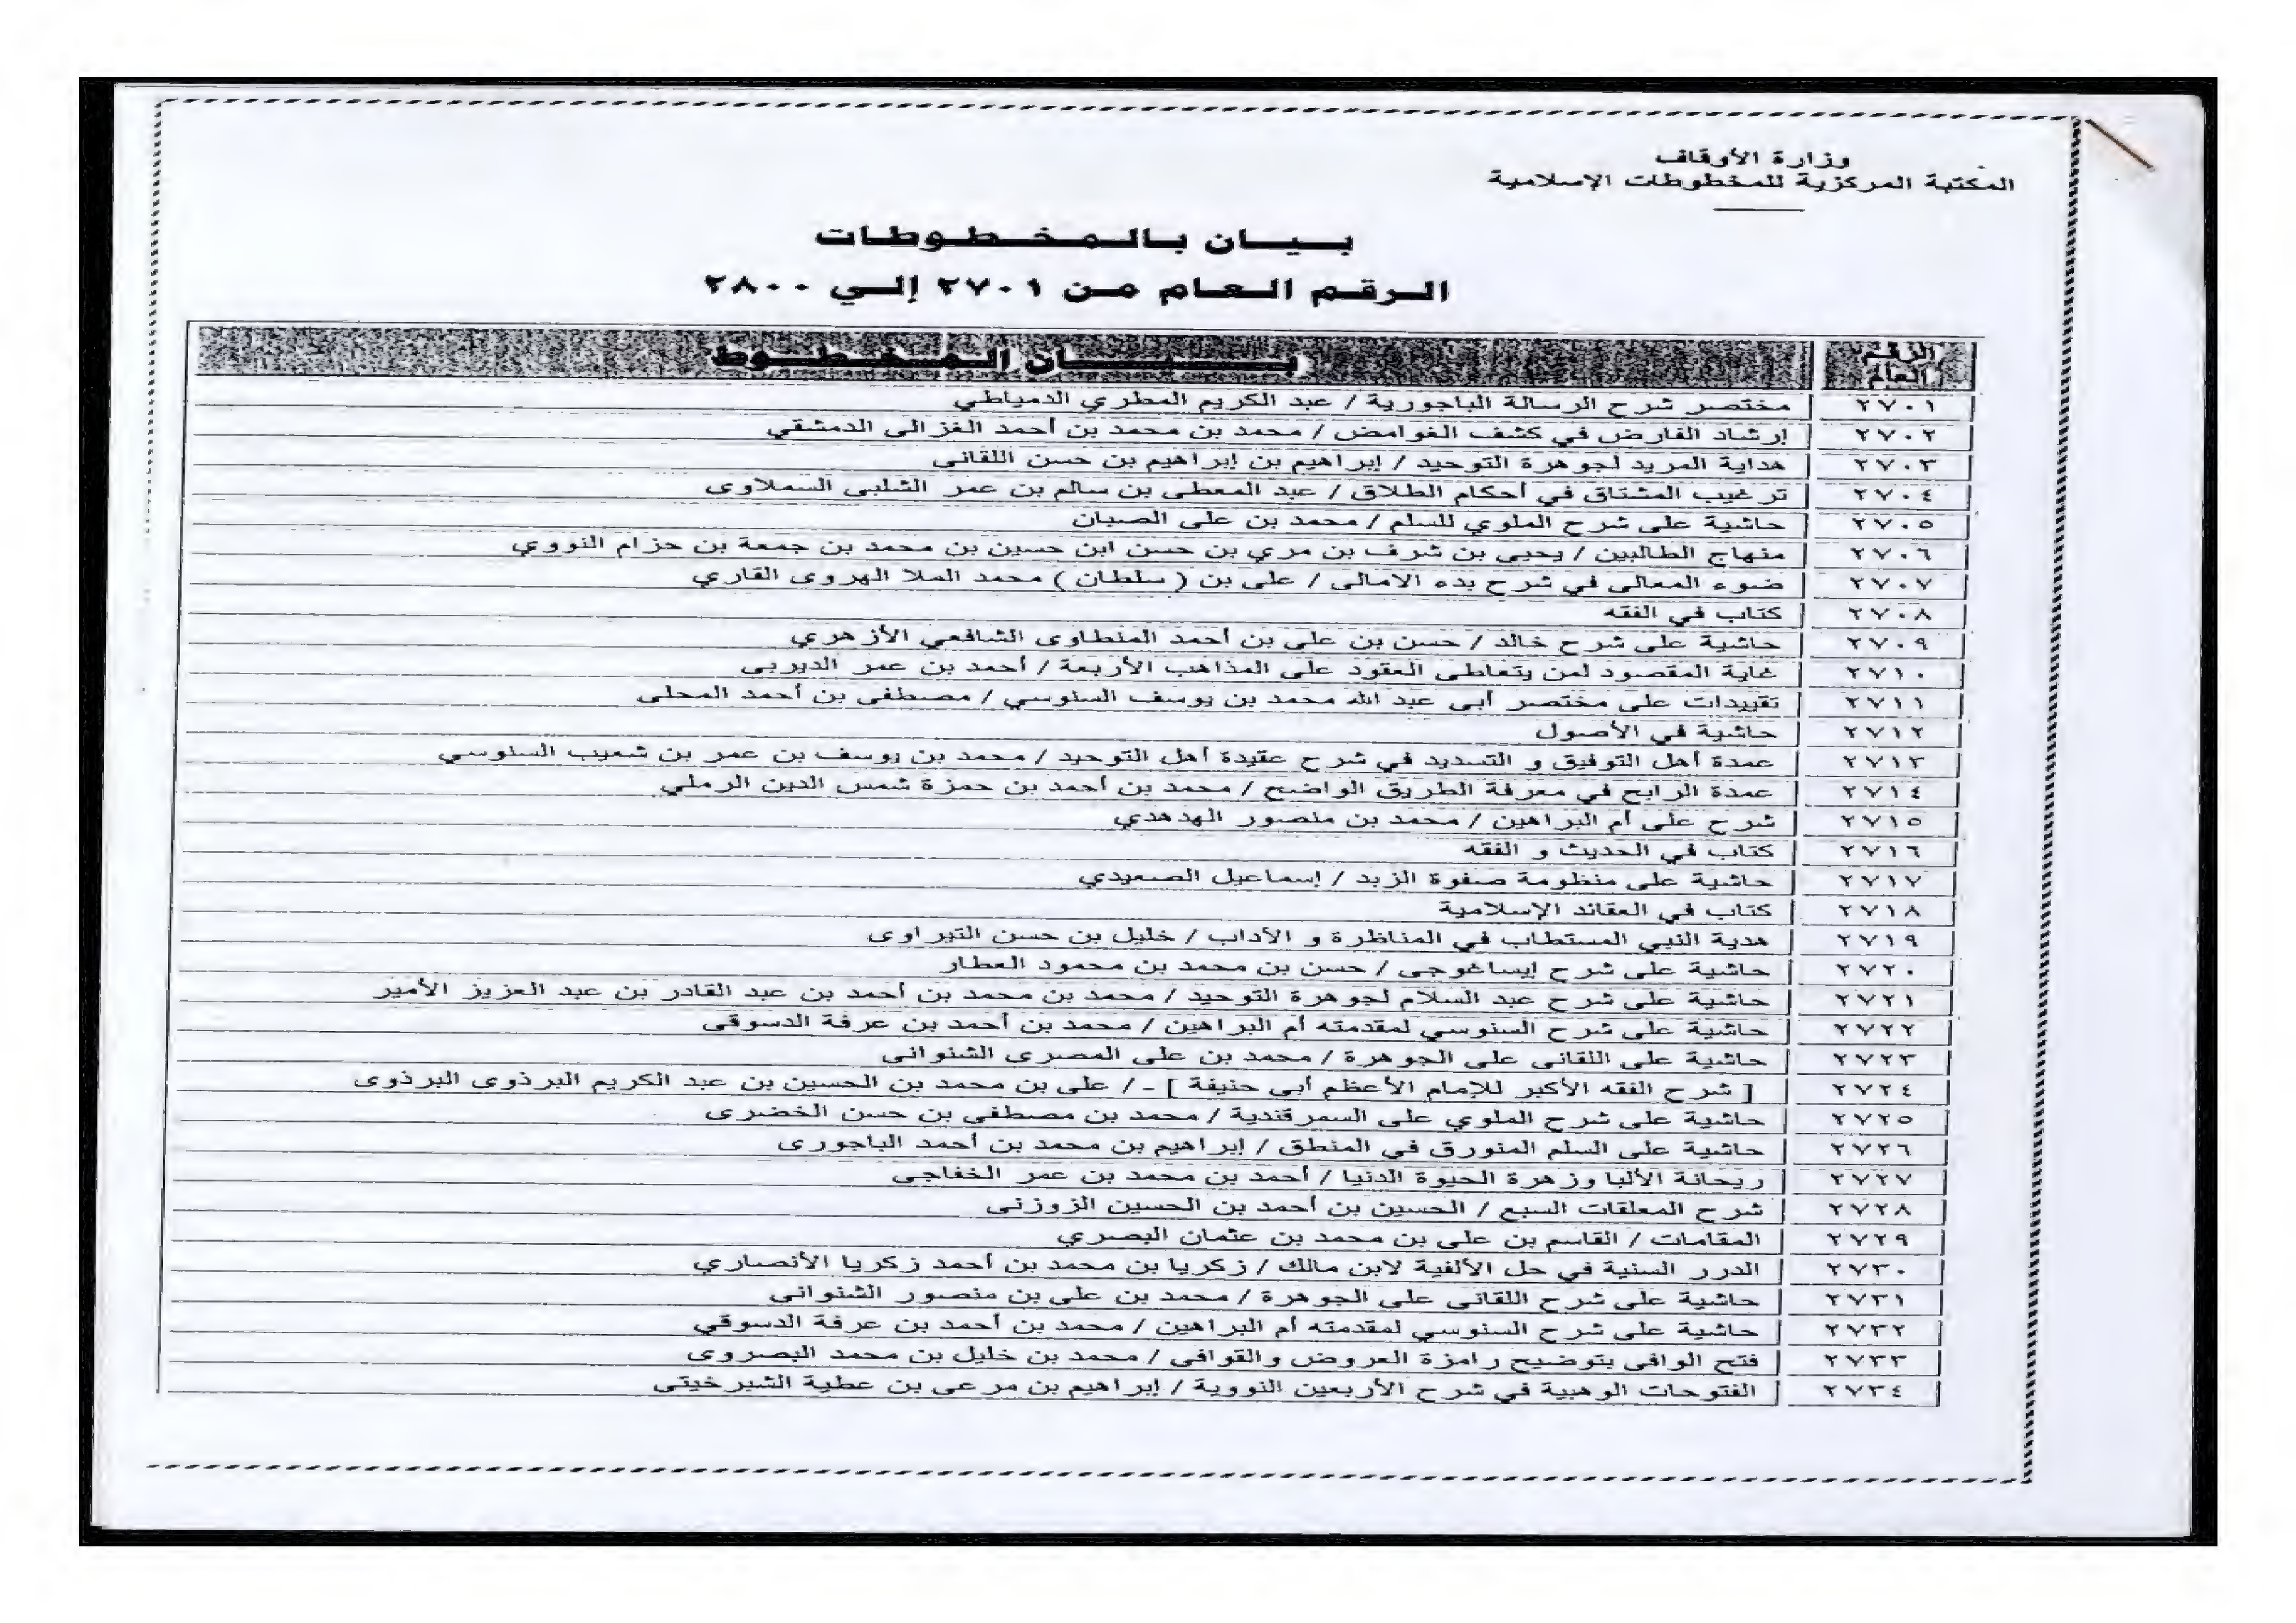 وزارة الأوقاف
المكتبة المركزية للمخطوطات الإسلامية
بيان بالمخطوطات
الرقم العام من ٢٧٠١ إلي ٢٨٠٠
الرقم العام | بيان المخطوط
٢٧٠١ | مختصر شرح الرسالة الباجورية / عبد الكريم المطري الدمياطي
٢٧٠٢ | إرشاد الفارض في كشف الغوامض / محمد بن محمد بن أحمد الغزالى الدمشقي
٢٧٠٣ | هداية المريد لجوهرة التوحيد / إبراهيم بن إبراهيم بن حسن اللقانى
٢٧٠٤ | ترغيب المشتاق في أحكام الطلاق / عبد المعطى بن سالم بن عمر الشلبى السملاوى
٢٧٠٥ | حاشية على شرح الملوي للسلم / محمد بن على الصبان
٢٧٠٦ | منهاج الطالبين / يحيى بن شرف بن مري بن حسن ابن حسين بن محمد بن جمعة بن حزام النووي
٢٧٠٧ | ضوء المعالى في شرح بدء الامالى / على بن ( سلطان ) محمد الملا الهروى القاري
٢٧٠٨ | كتاب في الفقه
٢٧٠٩ | حاشية على شرح خالد / حسن بن على بن أحمد المنطاوى الشافعي الأزهري
٢٧١٠ | غاية المقصود لمن يتعاطى العقود على المذاهب الأربعة / أحمد بن عمر الديربى
٢٧١١ | تقييدات على مختصر أبى عبد الله محمد بن يوسف السنوسي / مصطفى بن أحمد المحلى
٢٧١٢ | حاشية في الأصول
٢٧١٣ | عمدة أهل التوفيق و التسديد في شرح عقيدة أهل التوحيد / محمد بن يوسف بن عمر بن شعيب السنوسي
٢٧١٤ | عمدة الرابح في معرفة الطريق الواضح / محمد بن أحمد بن حمزة شمس الدين الرملي
٢٧١٥ | شرح على أم البراهين / محمد بن منصور الهدهدي
٢٧١٦ | كتاب في الحديث و الفقه
٢٧١٧ | حاشية على منظومة صفوة الزبد / إسماعيل الصعيدي
٢٧١٨ | كتاب في العقائد الإسلامية
٢٧١٩ | هدية النبي المستطاب في المناظرة و الآداب / خليل بن حسن التيراوى
٢٧٢٠ | حاشية على شرح إيساغوجى / حسن بن محمد بن محمود العطار
٢٧٢١ | حاشية على شرح عبد السلام لجوهرة التوحيد / محمد بن محمد بن أحمد بن عبد القادر بن عبد العزيز الأمير
٢٧٢٢ | حاشية على شرح السنوسي لمقدمته أم البراهين / محمد بن أحمد بن عرفة الدسوقي
٢٧٢٣ | حاشية على اللقانى على الجوهرة / محمد بن على المصرى الشنوانى
٢٧٢٤ | [ شرح الفقه الأكبر للإمام الأعظم أبى حنيفة ] - / على بن محمد بن الحسين بن عبد الكريم البرذوى البرذوى
٢٧٢٥ | حاشية على شرح الملوي على السمرقندية / محمد بن مصطفى بن حسن الخضرى
٢٧٢٦ | حاشية على السلم المنورق في المنطق / إبراهيم بن محمد بن أحمد الباجورى
٢٧٢٧ | ريحانة الألبا وزهرة الحيوة الدنيا / أحمد بن محمد بن عمر الخفاجى
٢٧٢٨ | شرح المعلقات السبع / الحسين بن أحمد بن الحسين الزوزنى
٢٧٢٩ | المقامات / القاسم بن على بن محمد بن عثمان البصري
٢٧٣٠ | الدرر السنية في حل الألفية لابن مالك / زكريا بن محمد بن أحمد زكريا الأنصاري
٢٧٣١ | حاشية على شرح اللقانى على الجوهرة / محمد بن على بن منصور الشنوانى
٢٧٣٢ | حاشية على شرح السنوسي لمقدمته أم البراهين / محمد بن أحمد بن عرفة الدسوقي
٢٧٣٣ | فتح الوافى بتوضيح رامزة العروض والقوافى / محمد بن خليل بن محمد البصروى
٢٧٣٤ | الفتوحات الوهبية في شرح الأربعين النووية / إبراهيم بن مرعى بن عطية الشبرخيتى